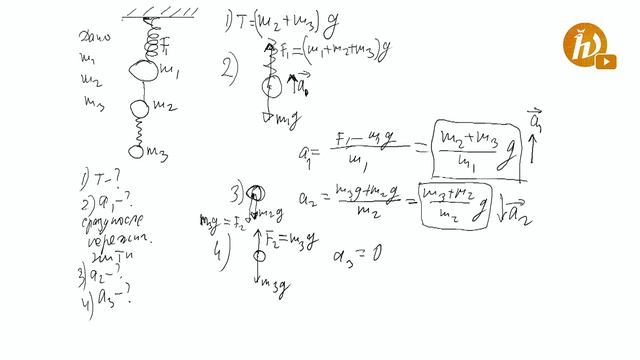 Дано
m₁
m₂
m₃
F₁
m₁
m₂
m₃
1) T-?
2) a₁-?
сразу после
пережиг.
нити
3) a₂-?
4) a₃-?
1) T=(m₂+m₃)g
2)
F₁=(m₁+m₂+m₃)g
a₁
m₁g
a₁ = (F₁-m₁g)/m₁ = (m₂+m₃)/m₁ g
a₁
3)
m₂g
m₃g=F₂
a₂ = (m₃g+m₂g)/m₂ = (m₃+m₂)/m₂ g
a₂
4)
F₂=m₃g
m₃g
a₃ = 0